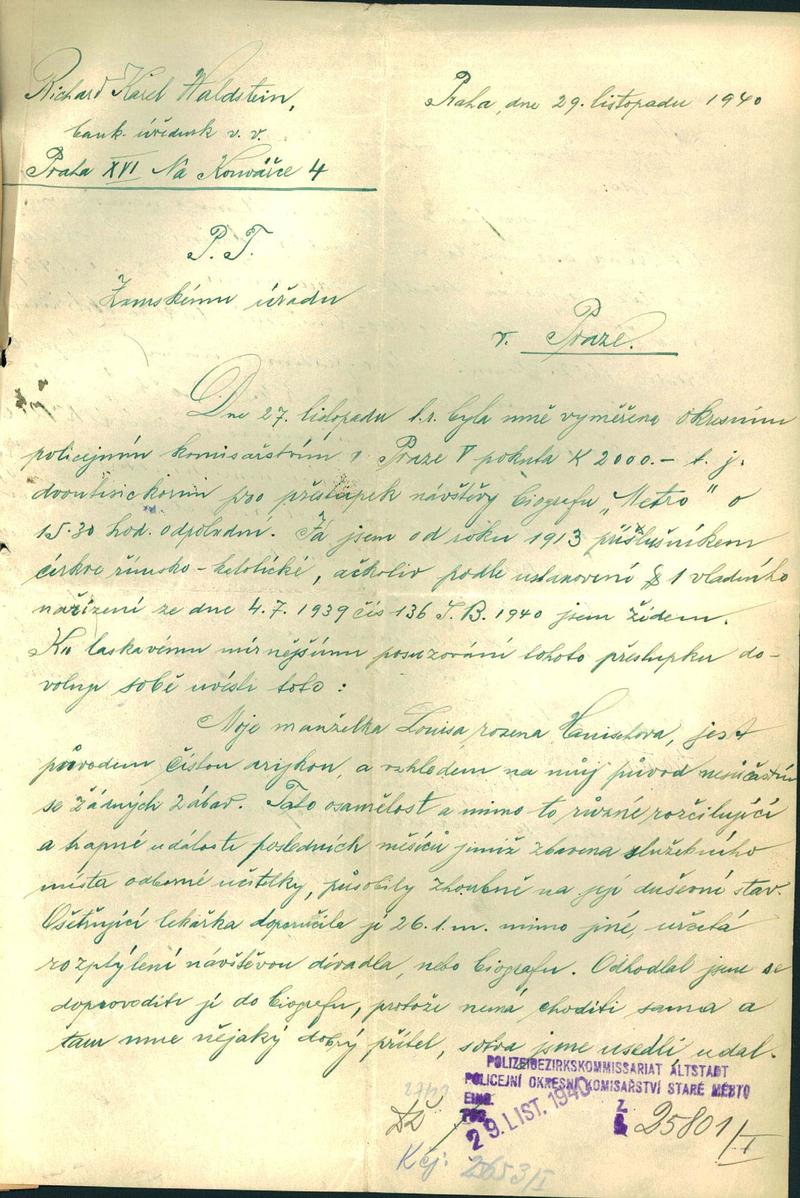 Richard Karel Waldstein,
bank. úředník v. v.
Praha XVI Na Konvářce 4
Praha, dne 29. listopadu 1940
P. T.
Zemskému úřadu
v. Praze.
Dne 27. listopadu t.r. byla mně vyměřena okresním
policejním komisařstvím v Praze V pokuta K 2000.- t. j.
dvoutisickorun pro přestupek návštěvy biografu „Metro" o
15.30 hod. odpolední. Já jsem od roku 1913 příslušníkem
církve římsko-katolické, ačkoliv podle ustanovení § 1 vladního
nařízení ze dne 4.7. 1939 čís 136 S.B. 1940 jsem židem.
Ku laskavému mírnějšímu posuzování tohoto přestupku do-
voluji sobě uvésti toto:
Moje manželka Louisa, rozena, jest
původem čistou arijkou, a vzhledem na můj původ nesúčastní
se žádných zábav. Tato osamělost a mimo to různé rozčilující
a trapné události posledních měsíců jimiž zbavena služebního
místa odborné učitelky, působily zhoubně na její duševní stav.
Ošetřující lékařka doporučila jí 26. t. m. mimo jiné, určitá
rozptýlení návštěvou divadla, nebo biografu. Odhodlal jsem se
doprovoditi jí do biografu, protože nemá choditi sama a
tam mne nějaký dobrý přítel, sotva jsme usedli udal.
POLIZEIBEZIRKSKOMMISSARIAT ALTSTADT
POLICEJNÍ OKRESNÍ KOMISAŘSTVÍ STARÉ MĚSTO
EING.
29. LIST. 1940
Z. 25801/I
Kčj: 2653/I